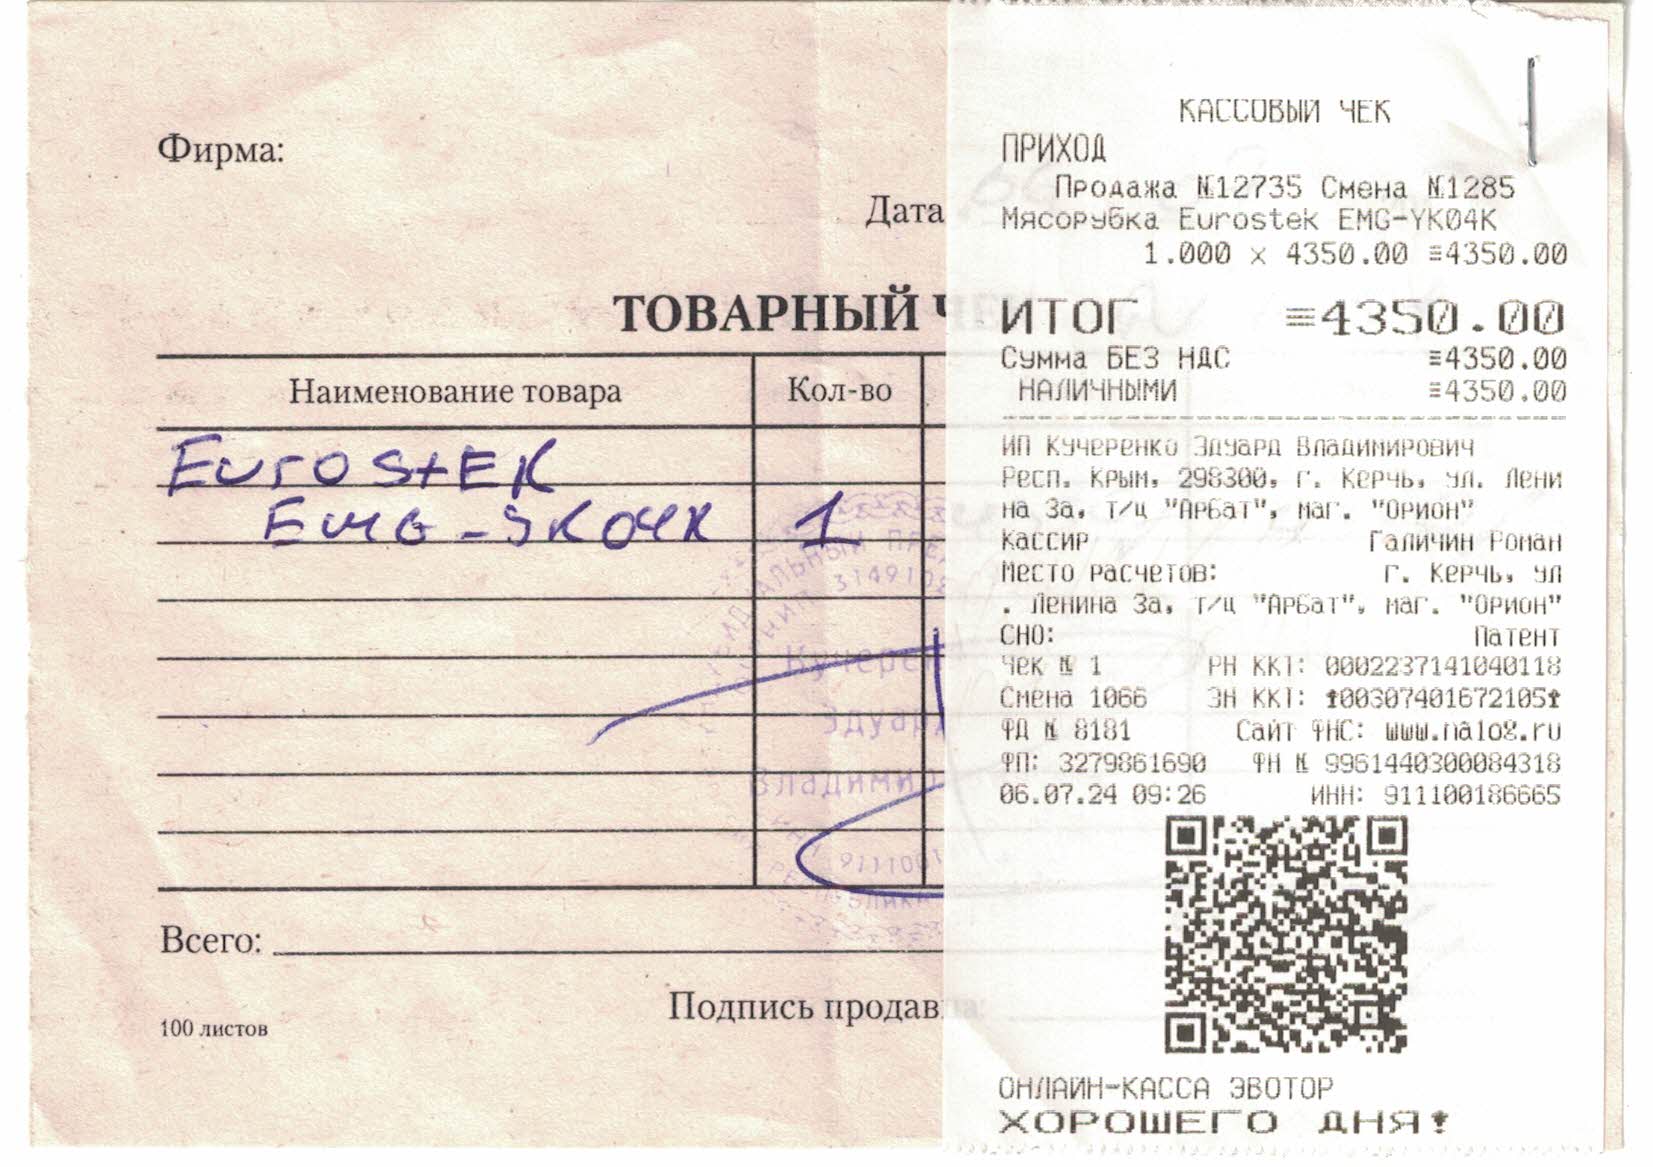 Фирма:
Дата
ТОВАРНЫЙ Ч
Наименование товара
Кол-во
EuroStEK
EMG-SK04K 1
ИНДИВИДУАЛЬНЫЙ ПРЕ
Кучерен
Эдуард
Владимир
9111001
РЕСПУБЛИКА
Всего:
Подпись продав
100 листов
КАССОВЫЙ ЧЕК
ПРИХОД
Продажа №12735 Смена №1285
Мясорубка Eurostek EMG-YK04K
1.000 x 4350.00 ≡4350.00
ИТОГ ≡4350.00
Сумма БЕЗ НДС ≡4350.00
НАЛИЧНЫМИ ≡4350.00
ИП Кучеренко Эдуард Владимирович
Респ. Крым, 298300, г. Керчь, ул. Лени
на 3а, т/ц "Арбат", маг. "ОРИОН"
Кассир Галичин Роман
Место расчетов: г. Керчь, ул
. Ленина 3а, т/ц "Арбат", маг. "ОРИОН"
СНО: Патент
Чек № 1 РН ККТ: 0002237141040118
Смена 1066 ЗН ККТ: *00307401672105*
ФД № 8181 Сайт ФНС: www.nalog.ru
ФП: 3279861690 ФН № 9961440300084318
06.07.24 09:26 ИНН: 911100186665
ОНЛАЙН-КАССА ЭВОТОР
ХОРОШЕГО ДНЯ!